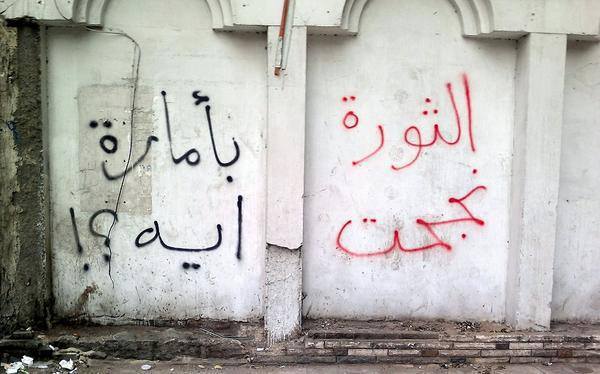 الثورة
نجحت
بأمارة
ايه؟!